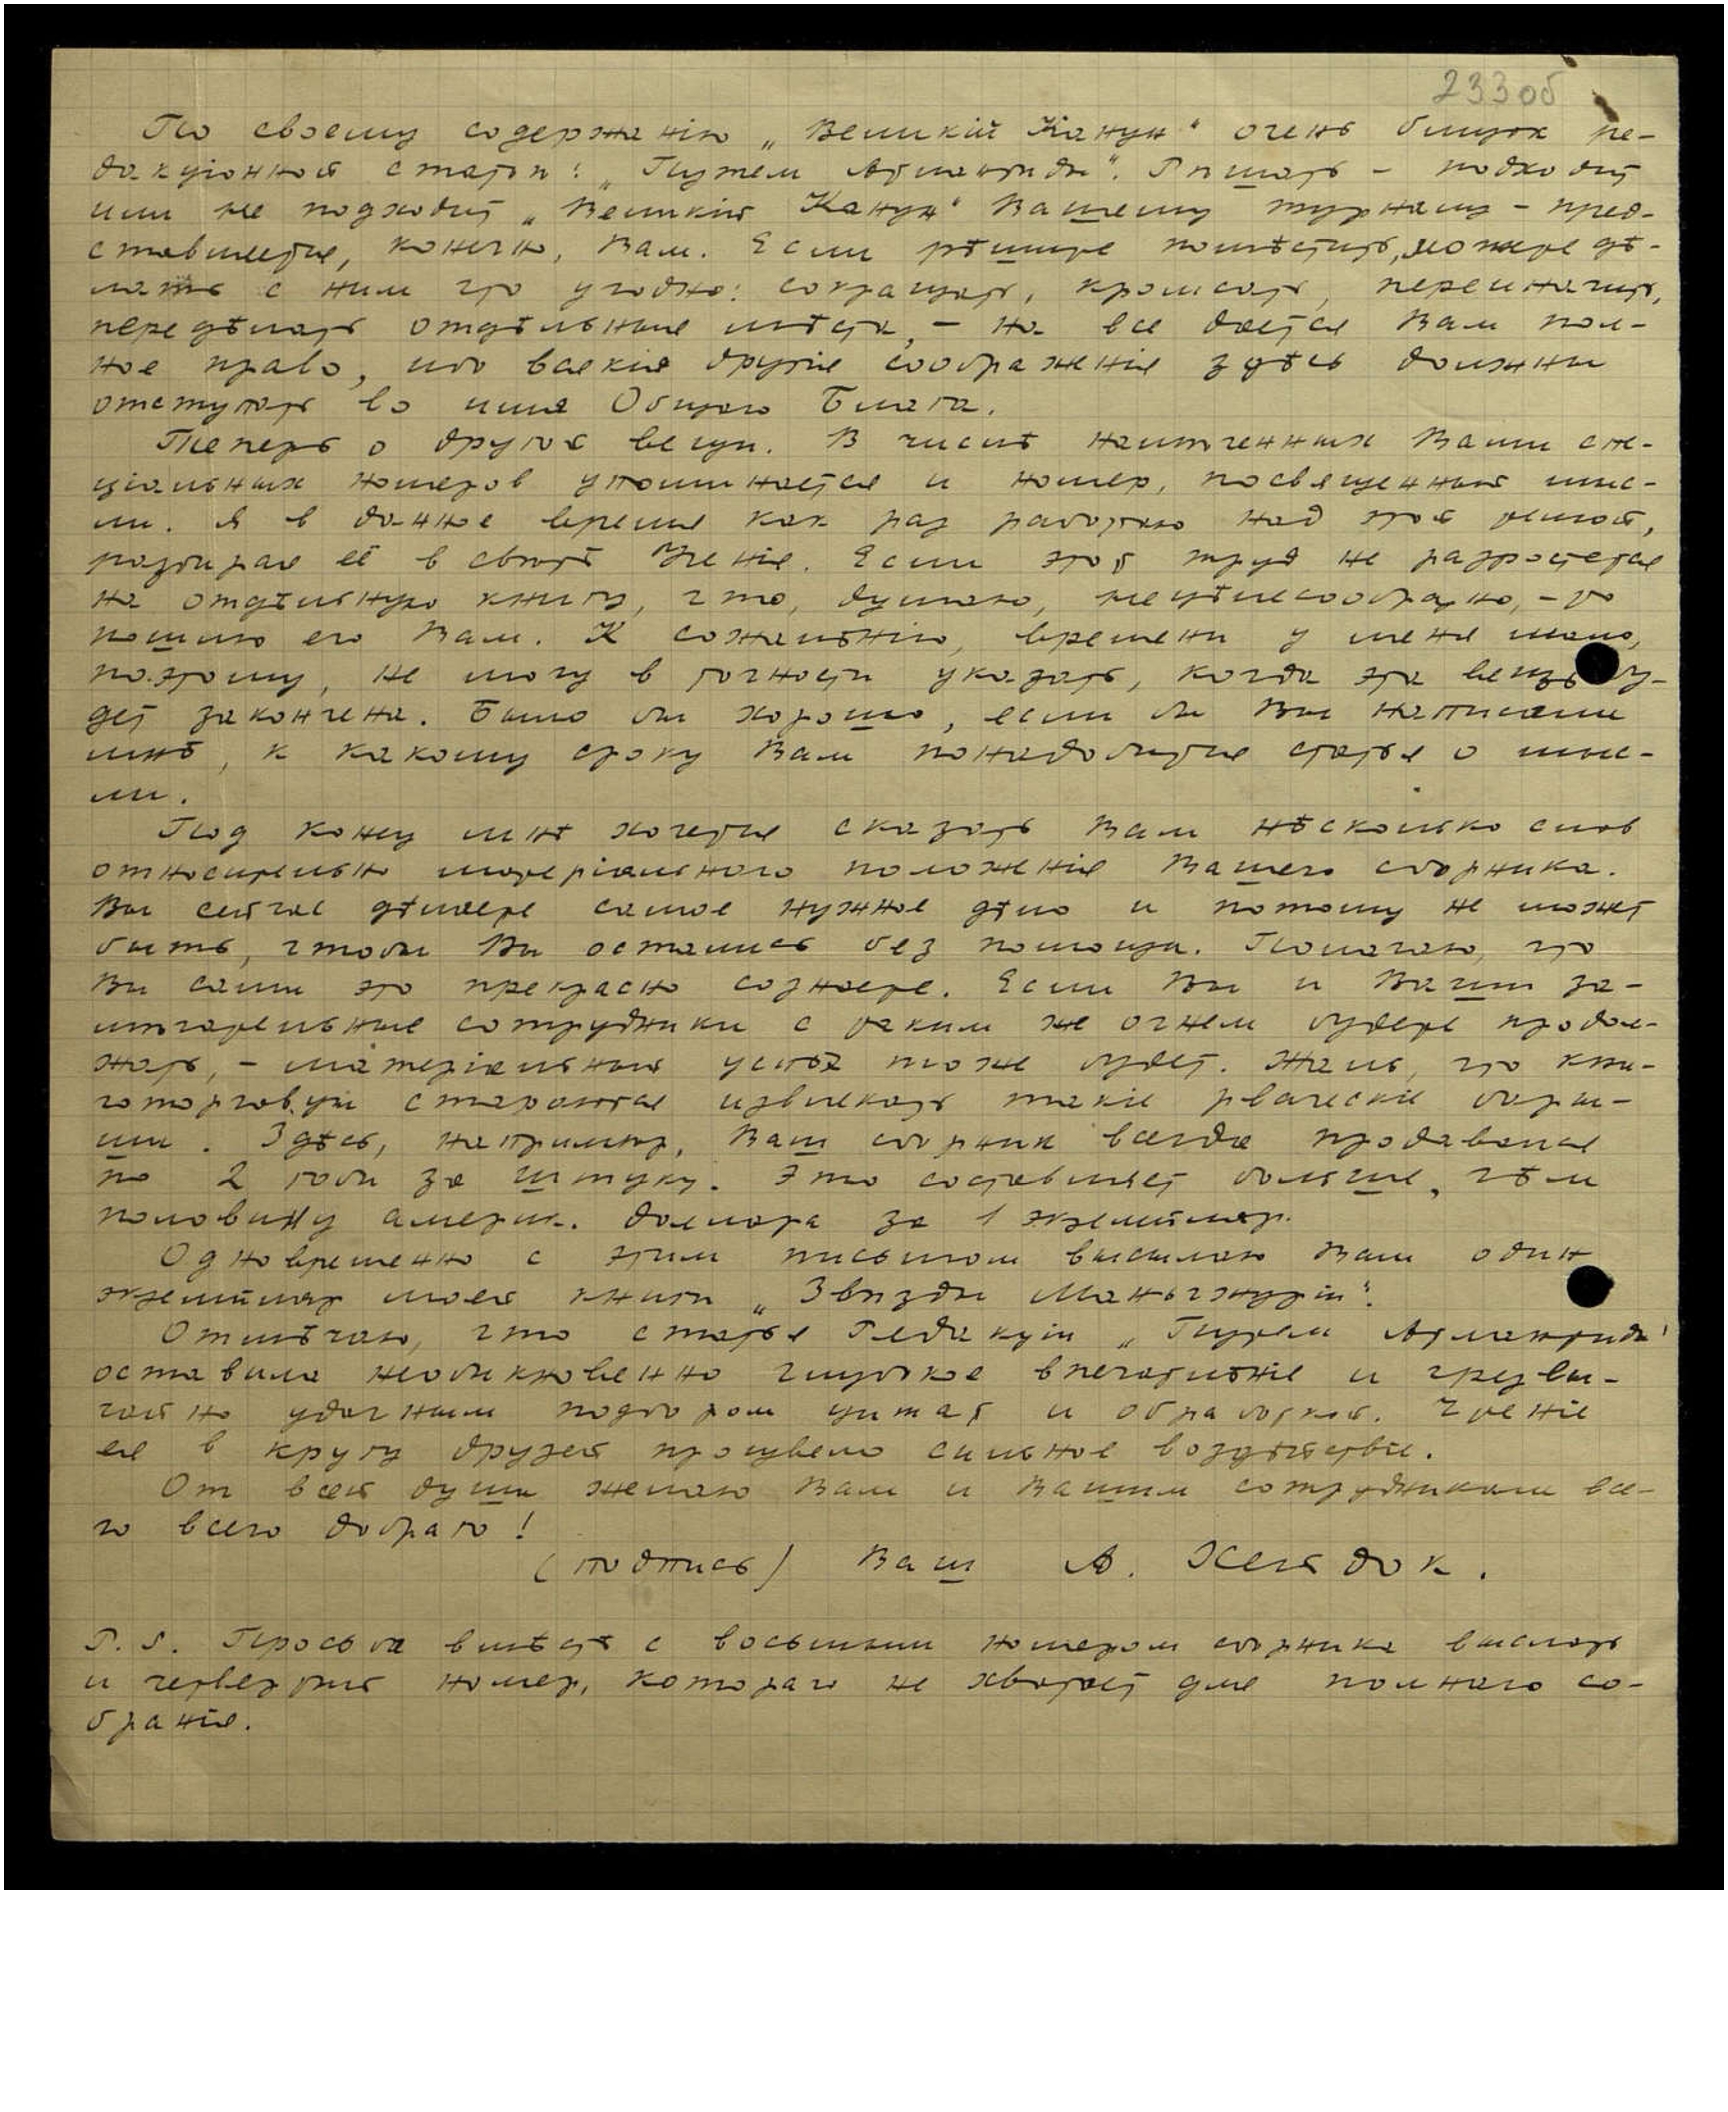 233 об
По своему содержанію „Великій Канун“ очень близок ре-
дакціонной статьи: „Путем Атлантиды“. Рѣшать – подходит
или не подходит „Великій Канун“ Вашему журналу – пред-
ставляется, конечно, Вам. Если рѣшите помѣстить, можете дѣ-
лать с ним что угодно: сокращать, кромсать, переиначить,
передѣлать отдѣльные мѣста, – на все дается Вам пол-
ное право, ибо всякія другіе соображенія здѣсь должны
отступать во имя Общаго Блага.
Теперь о другой вещи. В числѣ намѣченных Вами спе-
ціальных номеров упоминается и номер, посвященный мыс-
ли. Я в данное время как раз работаю над этой темой,
разбирая её в свѣтѣ Ученія. Если этот труд не разростется
на отдѣльную книгу, что, думаю, нецѣлесообразно, – то
пошлю его Вам. К сожалѣнію, времени у меня мало,
поэтому, не могу в точности указать, когда эта вещь бу-
дет закончена. Было бы хорошо, если бы Вы написали
мнѣ, к какому сроку Вам понадобится статья о мыс-
ли.
Под конец мнѣ хочется сказать Вам нѣсколько слов
относительно матеріального положенія Вашего сборника.
Вы сейчас дѣлаете самое нужное дѣло и потому не может
быть, чтобы Вы остались без помощи. Полагаю, что
Вы сами это прекрасно сознаете. Если Вы и Ваши за-
мѣчательные сотрудники с таким же огнем будете продол-
жать, – матеріальный успѣх тоже будет. Жаль, что кни-
готорговцы стараются извлекать такіе рваческіе бары-
ши. Здѣсь, напримѣр, Ваш сборник всегда продавался
по 2 гоби за штуку. Это составляет больше, чѣм
половину америк. доллара за 1 экземпляр.
Одновременно с этим письмом высылаю Вам один
экземпляр моей книги „Звѣзды Маньчжуріи“.
Отмѣчаю, что статья Редакціи „Путем Атлантиды“
оставила необыкновенно глубокое впечатлѣніе и чрезвы-
чайно удачным подбором цитат и обработкой. Чтеніе
ея в кругу друзей произвело сильное воздѣйствіе.
От всей души желаю Вам и Вашим сотрудникам все-
го всего добраго!
(подпись) Ваш А. Хейдок.
P. S. Просьба вмѣстѣ с восьмым номером сборника выслать
и четвертый номер, котораго не хватает для полнаго со-
бранія.